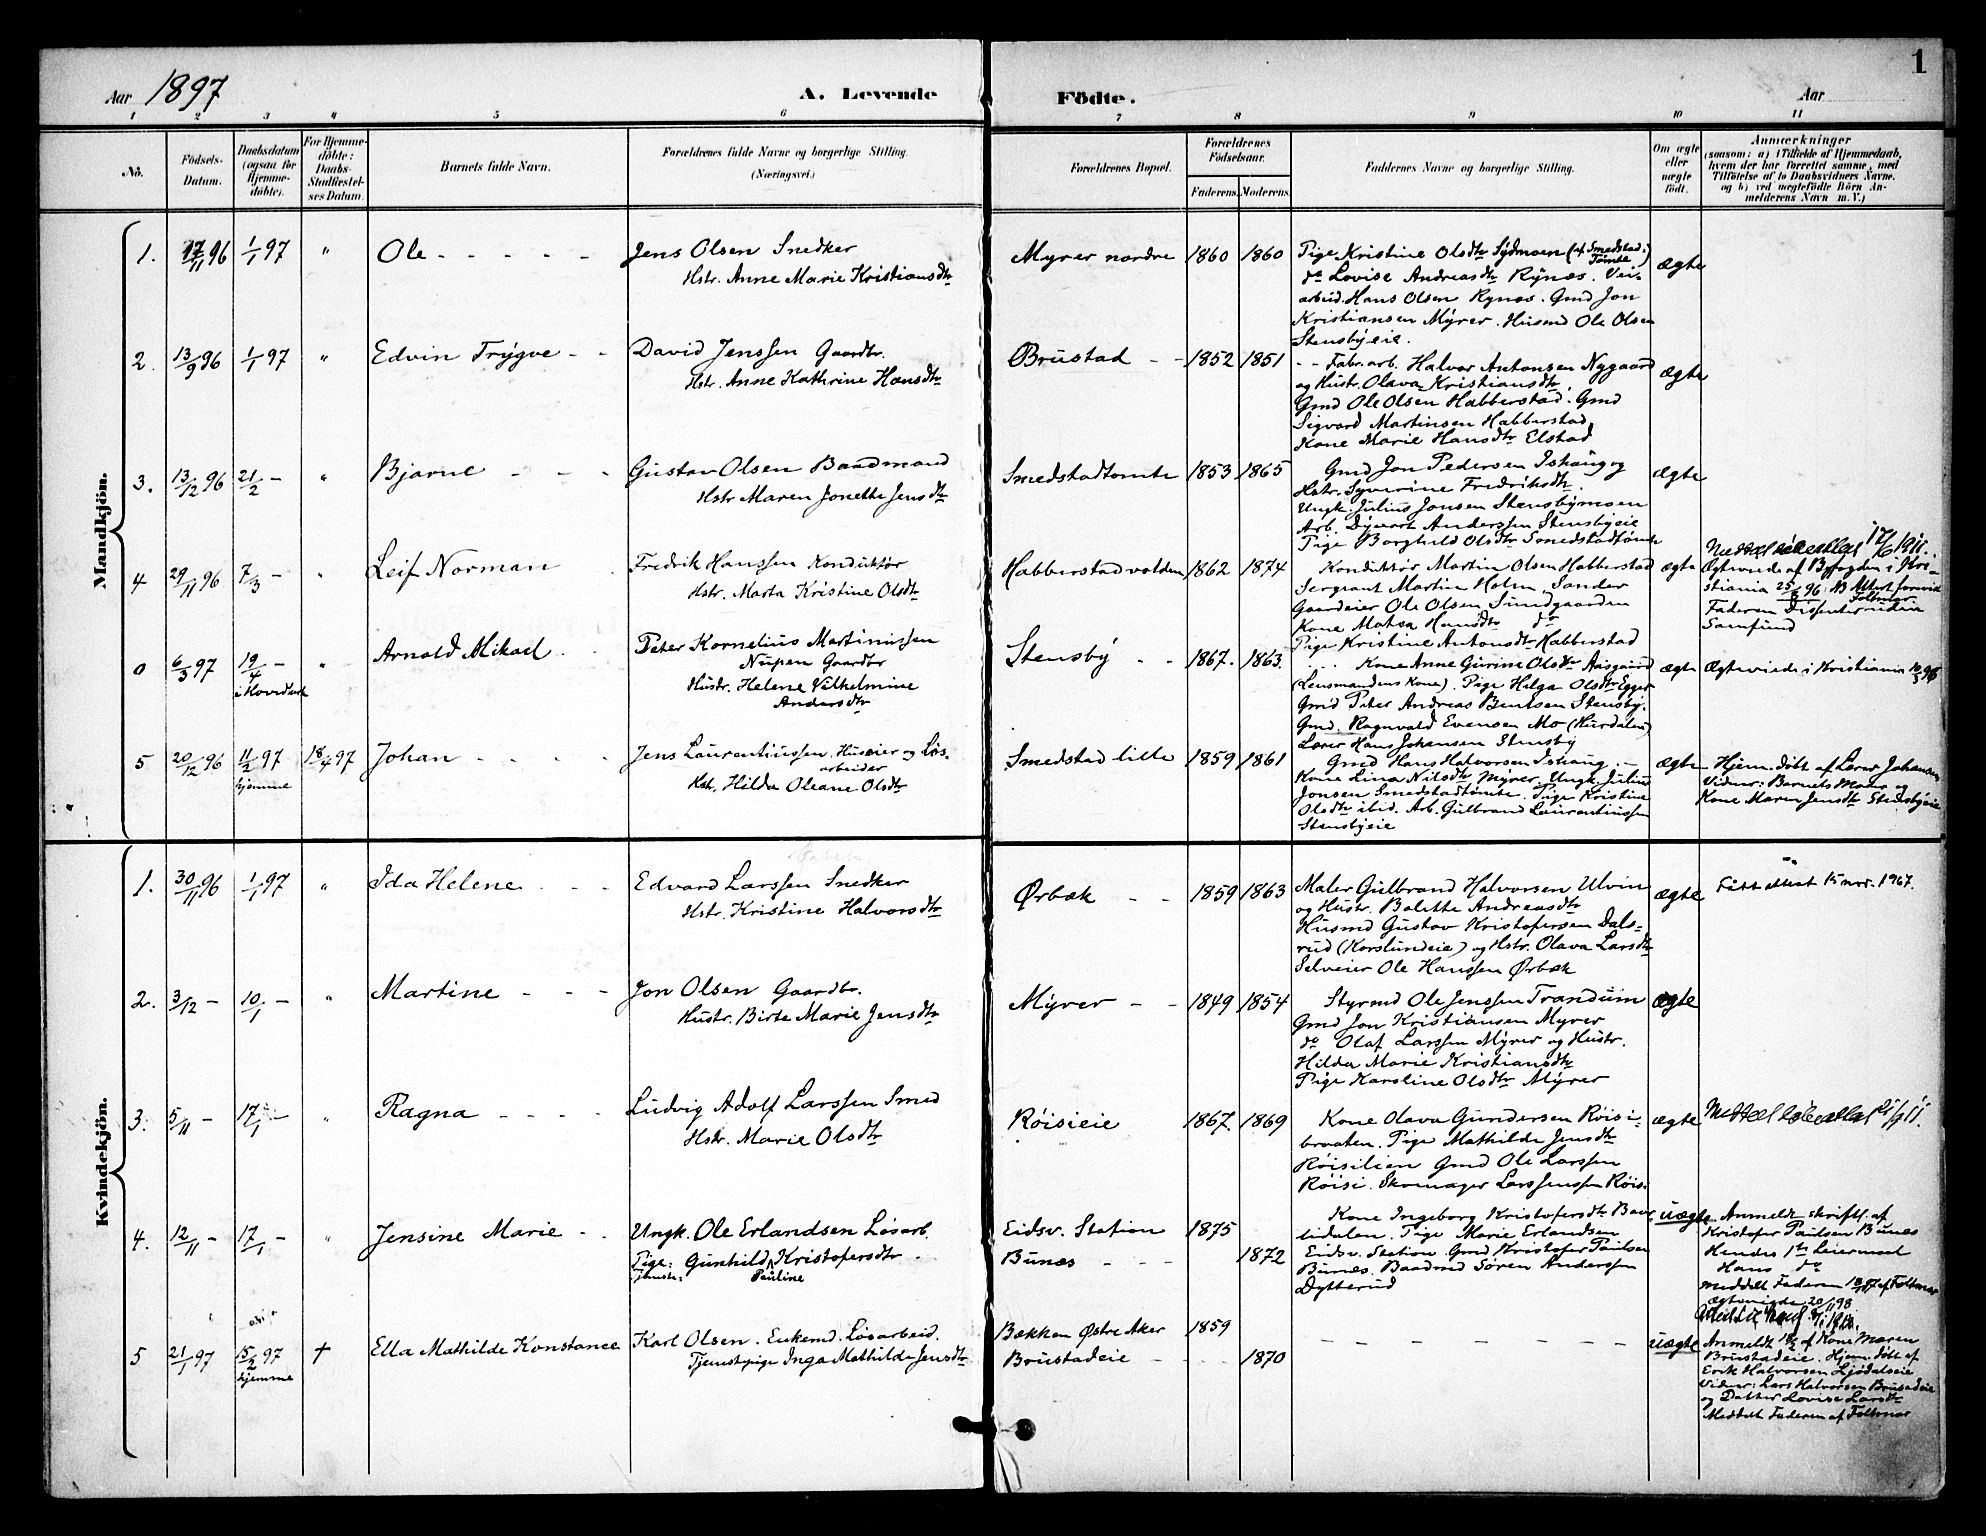 1
Aar 1897
A. Levende
Födte.
Aar
1 2 3 4 5 6 7 8 9 10 11
No.
Födsels-
Datum.
Daabsdatum
(ogsaa for
Hjemme-
døbte).
For Hjemme-
døbte:
Daabs-
Stadfæstel-
ses Datum.
Barnets fulde Navn.
Forældrenes fulde Navne og borgerlige Stilling.
(Næringsvei.)
Forældrenes Bopæl.
Forældrenes
Födselsaar.
Faderens.
Moderens.
Faddernes Navne og borgerlige Stilling.
Om ægte
eller
uægte
födt.
Anmærkninger
(saasom: a) i Tilfælde af Hjemmedaab,
hvem der har forrettet samme, med
Tilföielse af to Daabsvidners Navne.
og b) ved uægtefödte Börn An-
melderens Navn m. V.)
Mandkjön.
1. 17/11 96 1/1 97 " Ole
Jens Olsen Snedker
Hstr. Anne Marie Kristiansdtr
Myrer nordre 1860 1860
Pige Kristine Olsdtr Sydmoen (af Smedstad-
Tomte)
do Lovise Andreasdtr Rynæs. Vei-
arbeid. Hans Olsen Rynæs. Gmd Jon
Kristiansen Myrer. Husmd Ole Olsen
Stensbyeie.
ægte
2. 13/9 96 1/1 97 " Edvin Trygve
David Jenssen Gaardbr.
Hstr. Anne Kathrine Hansdtr
Brustad 1852 1851
Fabr. arb. Halvor Antonsen Nygaard
og Hustr. Olava Kristiansdtr.
Gmd Ole Olsen Habberstad. Gmd
Sigvard Martinsen Habberstad
Kone Marie Hansdtr Elstad
ægte
3. 13/12 96 21/2 - " Bjarne
Gustav Olsen Baadmand
Hstr Maren Jonette Jensdtr
Smedstadtomte 1853 1865
Gmd Jon Pedersen Ishaug og
Hstr. Syverine Fredriksdtr.
Ungk. Julius Jonsen Stensbymoen
Arb. Dyvart Anderssen Stensbyeie
Pige Borghild Olsdtr Smedstadtomte
ægte
4 29/11 96 7/3 - " Leif Norman
Fredrik Hanssen Konduktør
Hstr. Marta Kristine Olsdtr
Habberstadvolden 1862 1874
Konduktør Martin Olsen Habberstad
Sergeant Martin Holm Sander
Gaardeier Ole Olsen Sundgaarden
Kone Matea Hansdtr do
Pige Kristine Antonsdtr Habberstad
ægte
Ægteviede af Byfogden i Kri-
stiania 25/ 96.
Faderen Dissenter
Samfund
0 6/3 97 19/4 - " Arnold Mikael
Peter Kornelius Martiniussen
Nupen Gaardbr
Hustr. Helene Vilhelmine
Andersdtr
Stensby 1867. 1863.
Kone Anne Gurine Olsdtr Aasgaard
(Lensmandens Kone). Pige Helga Olsdtr Egger
Gmd Peter Andreas Bentsen Stensby.
Gmd. Ragnvald Evensen Mo (Hurdalen)
Lærer Hans Johansen Stensby
ægte
Ægteviede i Kristiania
5 20/12 96 11/2 97
hjemme
18/4 97 Johan
Jens Laurentiussen. Huseier og Løs-
arbeider
Hstr. Hilda Oleane Olsdtr
Smedstad lille 1859 1861
Gmd Hans Halvorsen Ishaug.
Kone Lina Nilsdtr Myrer. Ungk. Julius
Jonsen Smedstadtomte. Pige Kristine
Olsdtr ibid. Arb. Gulbrand Laurentiussen
Stensbyeie
ægte
Hjem. døbt af Lærer Johansen
Vidner: Barnets Moder og
Kone Maren Jensdtr Stensbyeie
Kvindekjön.
1. 30/11 96 1/1 97 " Ida Helene
Edvard Larssen Snedker
Hstr. Kristine Halvorsdtr
Ørbæk 1859 1863
Maler Gulbrand Halvorsen Ulvin
og Hustr. Bolette Andreasdtr
Husmd Gustav Kristofersen Dals-
rud (Korslundeie) og Hstr. Olava Larsdtr
Selveier Ole Hanssen Ørbæk
ægte
Født attest 15 nov. 1967.
2. 3/12 - 10/1 - " Martine
Jon Olsen Gaardbr.
Hustr. Birte Marie Jensdtr
Myrer 1849 1854
Styrmd Ole Jenssen Trandum
Gmd Jon Kristiansen Myrer
do Olaf Larssen Myrer og Hustr.
Hilda Marie Kristiansdtr
Pige Karoline Olsdtr Myrer
ægte
3. 5/11 - 17/1 - " Ragna
Ludvig Adolf Larssen Smed
Hstr. Marie Olsdtr
Røisieie 1867. 1869
Kone Olava Gundersen Røisi-
braaten. Pige Mathilde Jensdtr
Røisilien Gmd Ole Larssen
Røisi. Skomager Larssenssen Røisi
ægte
4. 12/11 - 17/1 - " Jensine Marie
Ungk. Ole Erlandsen Løsarb.
Pige: Gunhild Kristofersdtr
Tjeneste: Pauline
Eidsv. Station 1875
Bunæs 1872
Kone Ingeborg Kristofersdtr
lidalen. Pige Marie Erlandsen
Eidsv. Station. Gmd Kristofer Paulsen
Bunæs. Baadmd Søren Anderssen
Dytterud
uægte
Anmeldt skriftl. af
Kristofer Paulsen Bunæs
Hendes 1ste Leiermaal
Hans do
Meddelt Faderen 18/1 97 af Foltmar
Ægteviede 20/11 98.
5 21/1 97 15/2 97
hjemme
† Ella Mathilde Konstance
Karl Olsen. Enkemd. Løsarbeid.
Tjenestepige Inga Mathilde Jensdtr
Bækken Østre Aker 1859
Brustadeie 1870
uægte
Anmeldt af Kone Maren
Brustadeie. Hjem. døbt af
Erik Halvorsen Ljødalseie
Vidner: Lars Halvorsen Brustadeie
og Datter Lovise Larsdtr
Meddelt Faderen af Foltmar